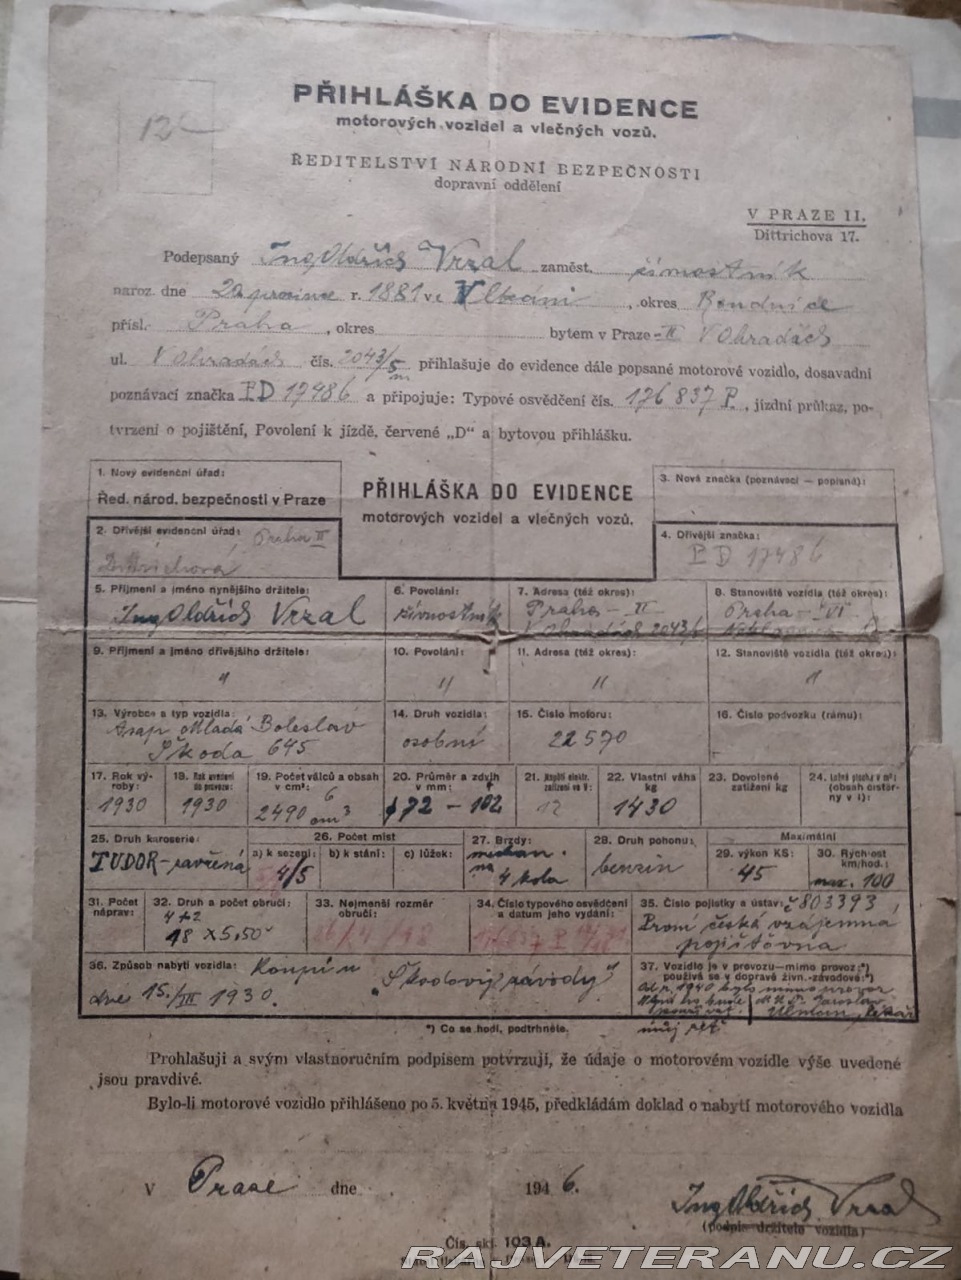 12
PŘIHLÁŠKA DO EVIDENCE
motorových vozidel a vlečných vozů.
ŘEDITELSTVÍ NÁRODNÍ BEZPEČNOSTI
dopravní oddělení
V PRAZE II.
Dittrichova 17.
Podepsaný Ing Oldřich Vrzal zaměst. živnostník
naroz. dne 20 prosince r. 1881 v , okres
přísl. Praha , okres bytem v Praze - II V Ohradách
ul. V Ohradách čís. 2043/5 přihlašuje do evidence dále popsané motorové vozidlo, dosavadní
poznávací značka PD 17486 a připojuje: Typové osvědčení čís. 176 837 P, jízdní průkaz, po-
tvrzení o pojištění, Povolení k jízdě, červené „D" a bytovou přihlášku.
1. Nový evidenční úřad:
Řed. národ. bezpečnosti v Praze
PŘIHLÁŠKA DO EVIDENCE
motorových vozidel a vlečných vozů.
3. Nová značka (poznávací — popisná):
2. Dřívější evidencní úřad: Praha II
Dittrichova
4. Dřívější značka:
PD 17486
5. Příjmení a jméno nynějšího držitele:
Ing Oldřich Vrzal
6. Povolání:
živnostník
7. Adresa (též okres):
Praha - II
V Ohradách 2043/
8. Stanoviště vozidla (též okres):
Praha - VI
9. Příjmení a jméno dřívějšího držitele:
"
10. Povolání:
"
11. Adresa (též okres):
"
12. Stanoviště vozidla (též okres):
"
13. Výrobce a typ vozidla:
Asap Mladá Boleslav
Škoda 645
14. Druh vozidla:
osobní
15. Číslo motoru:
22570
16. Číslo podvozku (rámu):
17. Rok vý-
roby:
1930
18. Rok uvedení
do provozu:
1930
19. Počet válců a obsah
v cm³: 6
2490 cm³
20. Průměr a zdvih
v mm:
72 - 102
21. Napětí elektr.
zařízení ve V:
12
22. Vlastní váha
kg
1430
23. Dovolené
zatížení kg
24. Ložná plocha v m²:
(obsah cistér-
ny v l):
25. Druh karoserie:
TUDOR - zavřená
26. Počet míst
a) k sezení:
4/5
b) k stání:
c) lůžek:
27. Brzdy:
mechan.
na
4 kola
28. Druh pohonu:
benzin
Maximální
29. výkon KS:
45
30. Rychlost
km/hod.:
max. 100
31. Počet
náprav:
32. Druh a počet obručí:
4+2
18 x 5,50
33. Nejmenší rozměr
obručí:
34. Číslo typového osvědčení
a datum jeho vydání:
176837 P
35. Číslo pojistky a ústav: č 803393,
První česká vzájemna
pojišťovna
36. Způsob nabytí vozidla: Koupí u „Škodovy závody"
dne 15./III 1930.
37. Vozidlo je v provozu—mimo provoz:*)
používá se v dopravě živn.-závodové:*)
Od r. 1940 bylo mimo provoz
*) Co se hodí, podtrhněte.
Prohlašuji a svým vlastnoručním podpisem potvrzuji, že údaje o motorovém vozidle výše uvedené
jsou pravdivé.
Bylo-li motorové vozidlo přihlášeno po 5. května 1945, předkládám doklad o nabytí motorového vozidla
V Praze dne 194 6.
Ing Oldřich Vrzal
(podpis držitele vozidla)
Čís. skl. 103 A.
RAJVETERANU.CZ